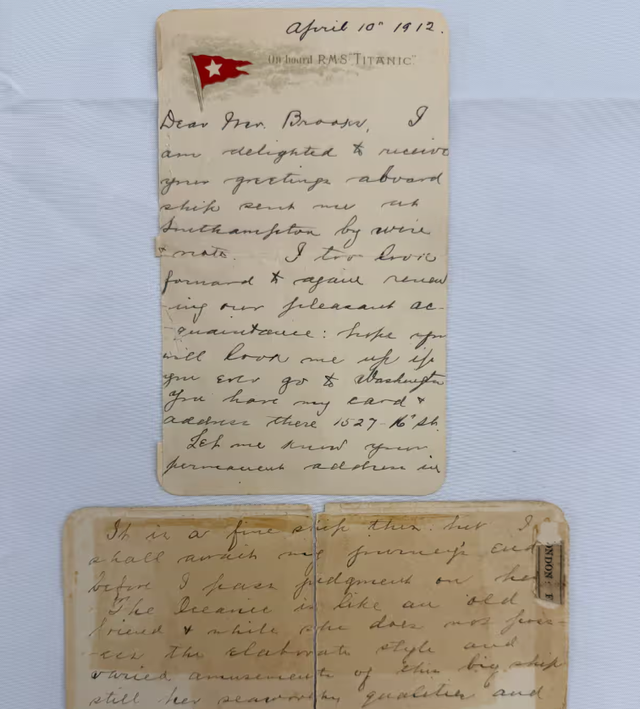 April 10" 1912.
On board R.M.S. "TITANIC".
Dear Mr. Brooks, I
am delighted to receive
your greetings aboard
ship sent me at
Southampton by wire
& note. I too look
forward to again renew
ing our pleasant ac-
quaintance: hope you
will look me up if
you ever go to Washington
You have my card &
address there 1527-16" St.
Let me know your
permanent address in
It is a fine ship this, but I
shall await my journey's end
before I pass judgment on her
The Oceanic is like an old
friend & while she does not poss-
ess the elaborate style and
varied amusements of this big ship
still her seaworthy qualities and
ONDON : E